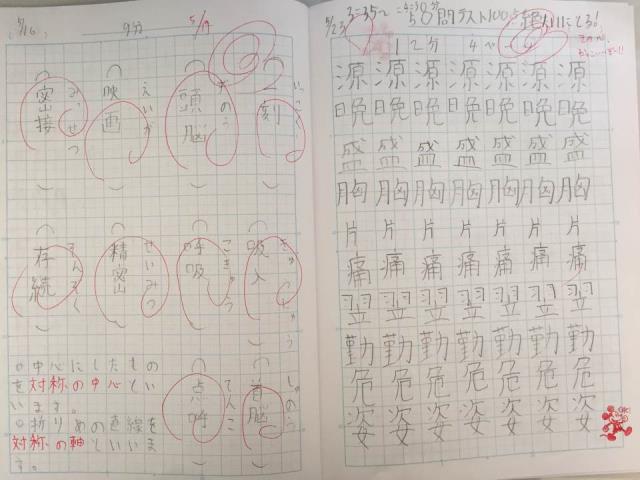 5/16 9分 5/19
一刻
いっこく
頭脳
ずのう
映画
えいが
密接
みっせつ
吸入
きゅうにゅう
呼吸
こきゅう
精密
せいみつ
存続
そんぞく
首脳
しゅのう
点呼
てんこ
○中心にしたもの
を対称の中心とい
います。
○折りめの直線を
対称の軸といいま
す。
5/23 3:35〜4:30 50問テスト100点絶対にとる!
12分
源源源源源源源
晩晩晩晩晩晩晩
盛盛盛盛盛盛盛
胸胸胸胸胸胸胸
片片片片片片片
痛痛痛痛痛痛痛
翌翌翌翌翌翌翌
勤勤勤勤勤勤勤
危危危危危危危
姿姿姿姿姿姿姿